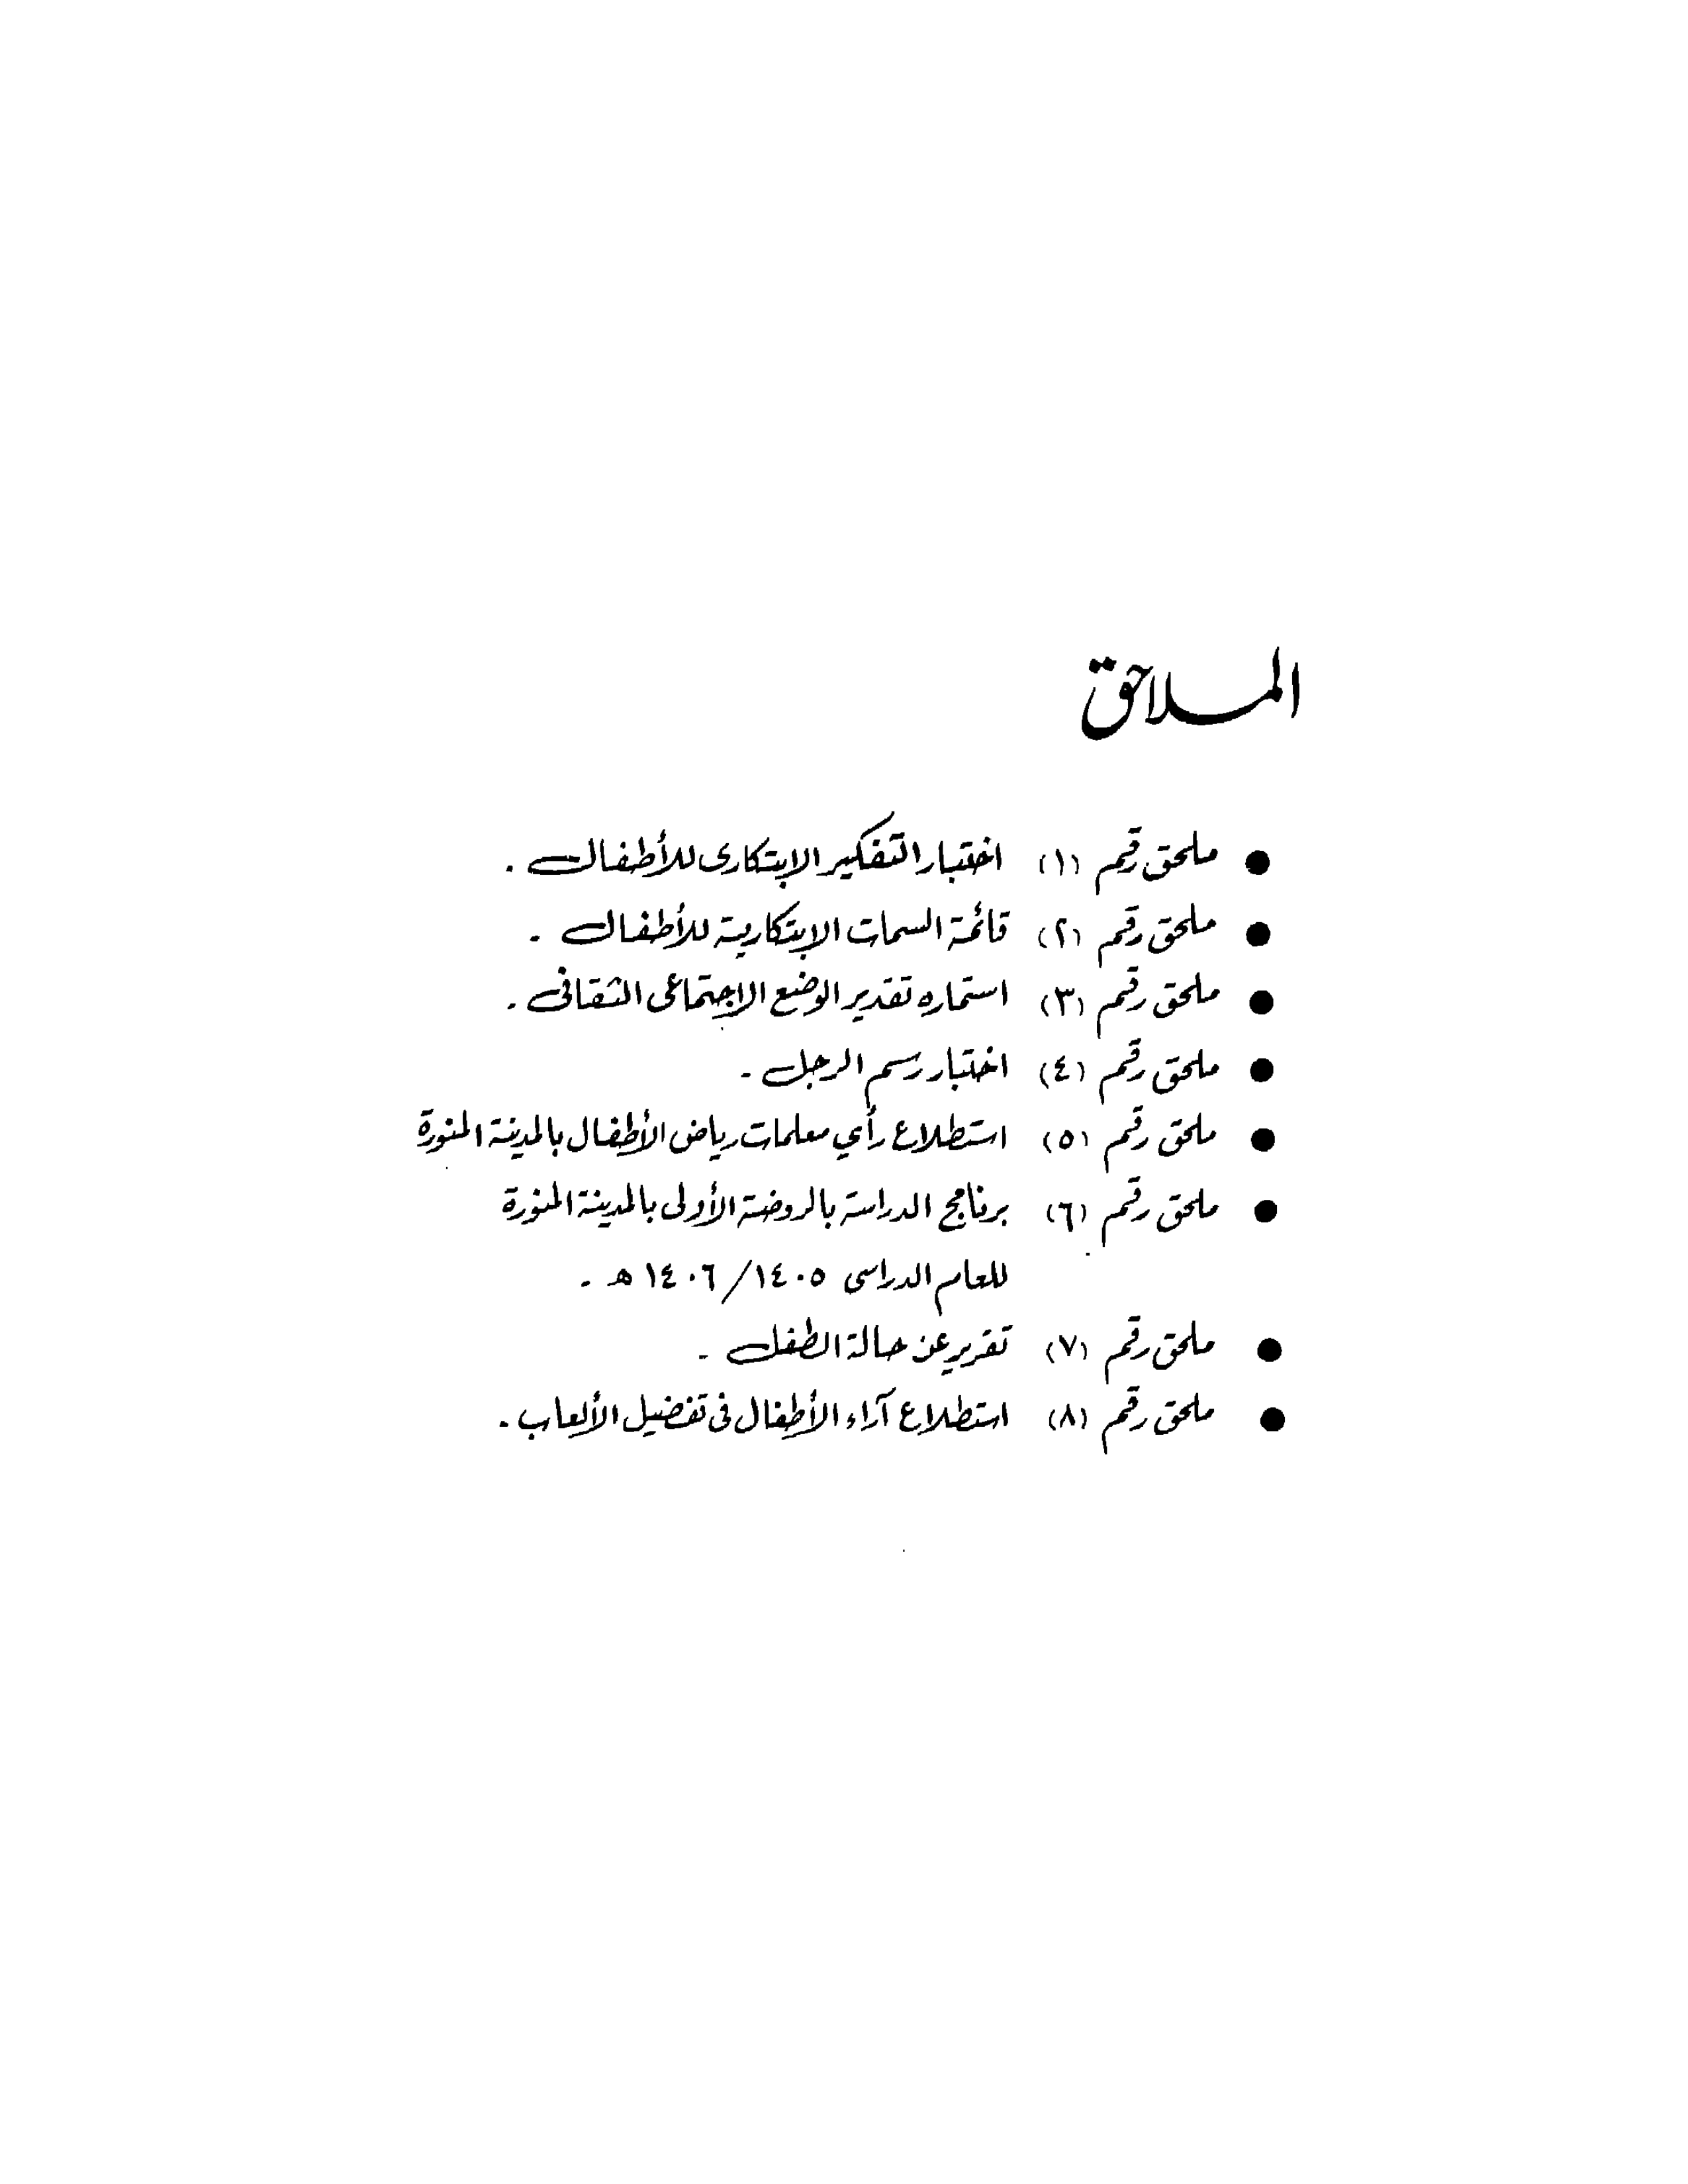 الملاحق
● ملحق رقم (١) اختبار التفكير الابتكارى للأطفال .
● ملحق رقم (٢) قائمة السمات الابتكارية للأطفال .
● ملحق رقم (٣) استماره تقدير الوضع الاجتماعى الثقافى .
● ملحق رقم (٤) اختبار رسم الرجل .
● ملحق رقم (٥) استطلاع رأي معلمات رياض الأطفال بالمدينة المنورة
● ملحق رقم (٦) برنامج الدراسة بالروضة الأولى بالمدينة المنورة
للعام الدراسى ١٤٠٥/١٤٠٦ هـ .
● ملحق رقم (٧) تقرير عن حالة الطفل .
● ملحق رقم (٨) استطلاع آراء الأطفال فى تفضيل الألعاب .